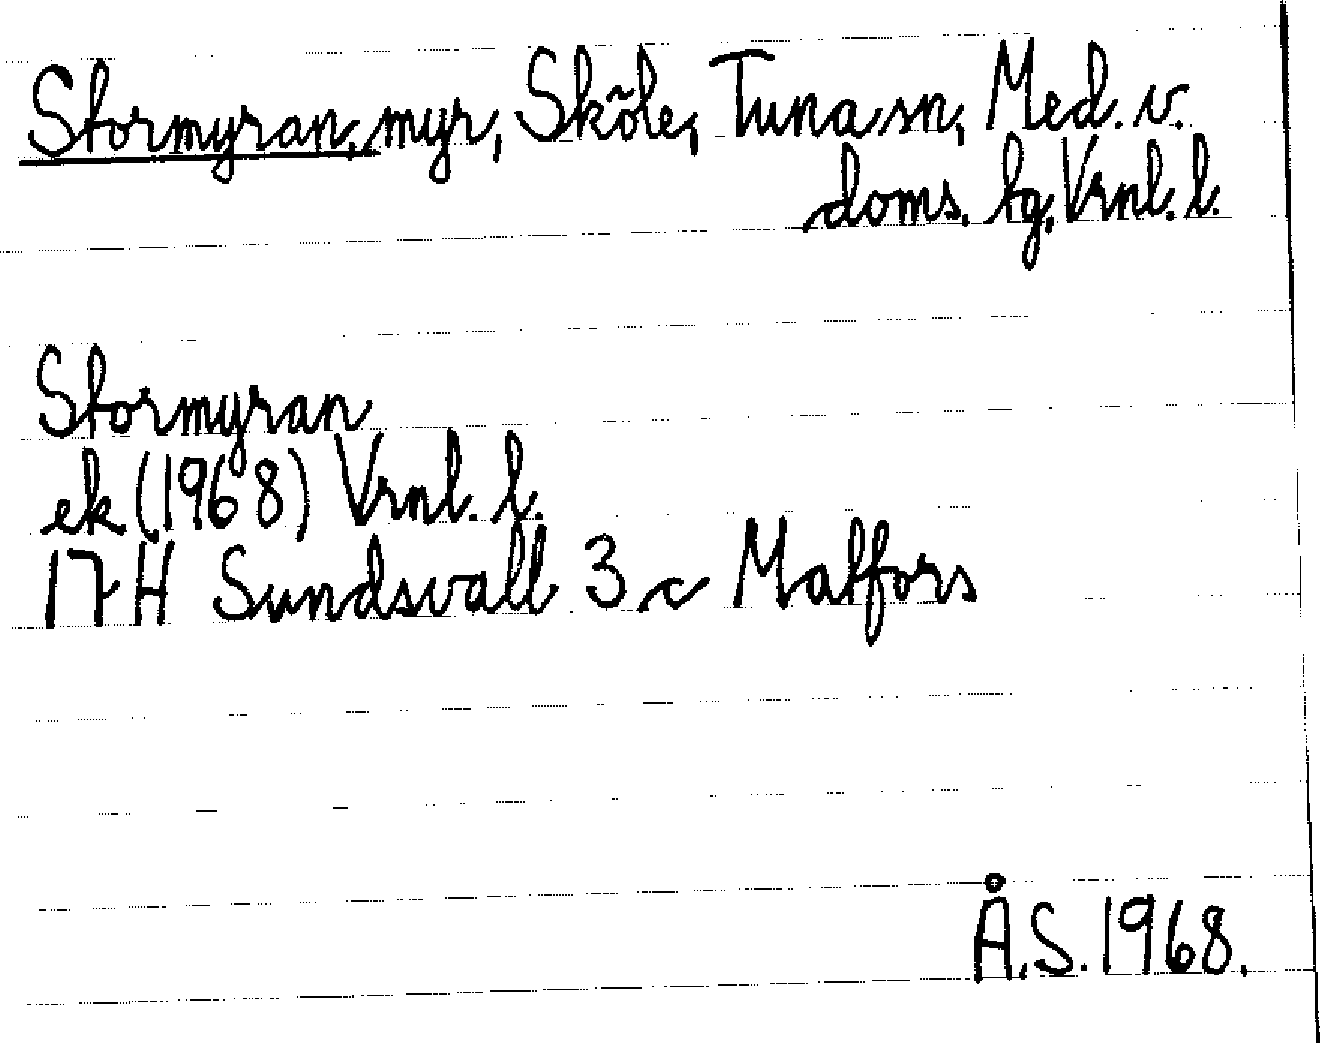 Stormyran, myr, Sköle, Tuna sn, Med. v.
doms. tg, Vrnl. l.
Stormyran
ek (1968) Vrnl. l.
17 H Sundsvall 3 c Matfors
Å.S. 1968.